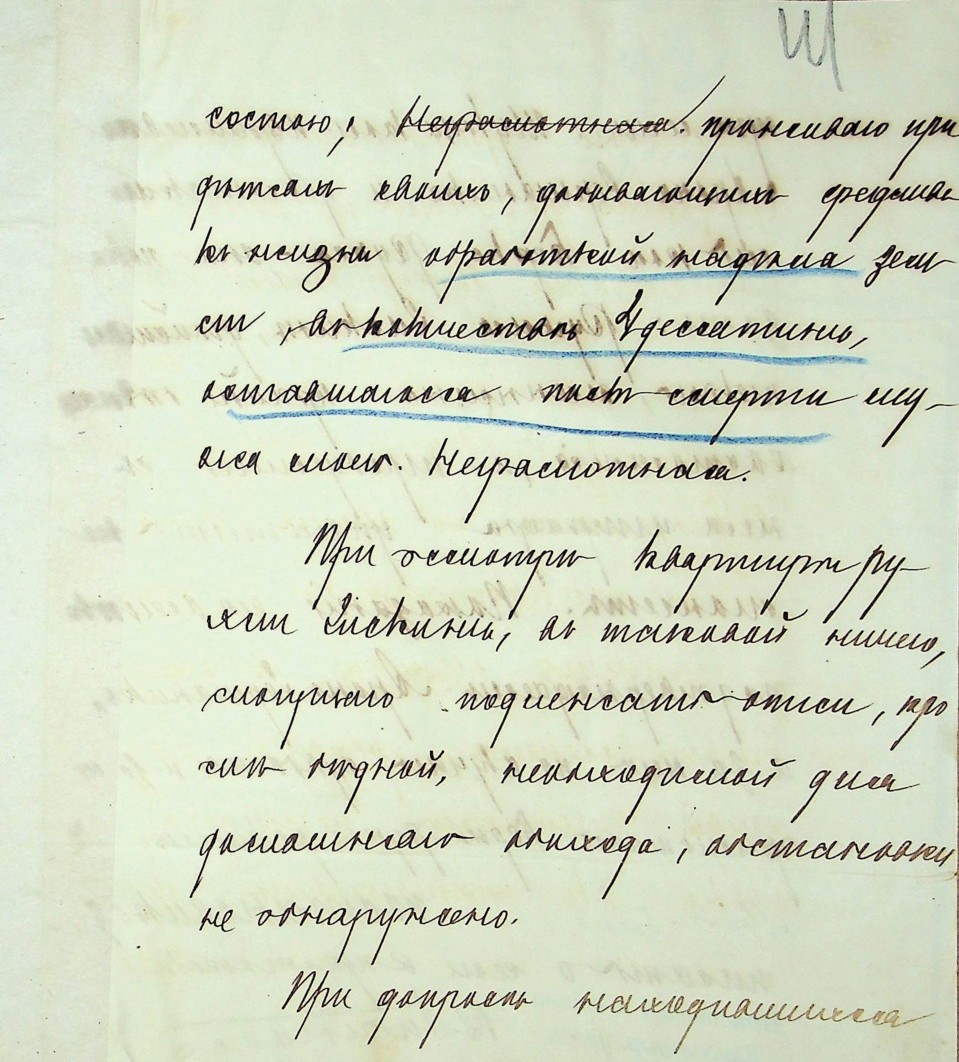 состою; Неграмотная. проживаю при
дѣтяхъ своихъ, добывающихъ средства
къ жизни обработкой надѣла земли
въ количествѣ 4 дессятинъ,
оставшагося послѣ смерти му-
жа моего. Неграмотная.
При осмотрѣ квартиры
въ таковой ничего,
могущаго подлежать описи, кро
мѣ бѣдной, необходимой для
домашняго обихода, обстановки
не обнаружено.
При допросѣ находившихся